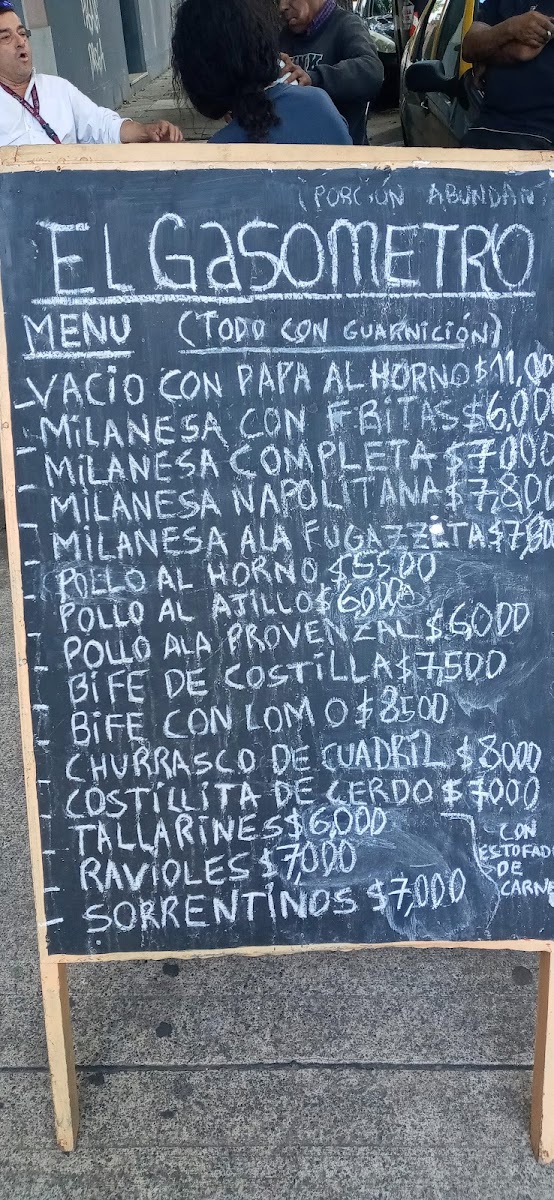 (PORCIÓN ABUNDAN
EL GaSOMETRO
MENU (TODO CON GUARNICIÓN)
- VACIO CON PAPA AL HORNO $11,00
- MiLANESA CON FRITAS $6,00
- MiLANESA COMPLETA $7000
- MiLANESA NAPOLITANA $7,800
- MiLANESA ALA FUGAZZETA $7,800
- POLLO AL HORNO $5500
- POLLO AL AJILLO $6000
- POLLO ALA PROVENZAL $6000
- BiFE DE COSTILLA $7,500
- BiFE CON LOMO $8500
- CHURRASCO DE CUADRiL $8000
- COSTILLITA DE CERDO $7000
- TALLARINES $6,000
- RAVIOLES $7,000
- SORRENTINOS $7,000
CON
ESTOFADO
DE
CARNE